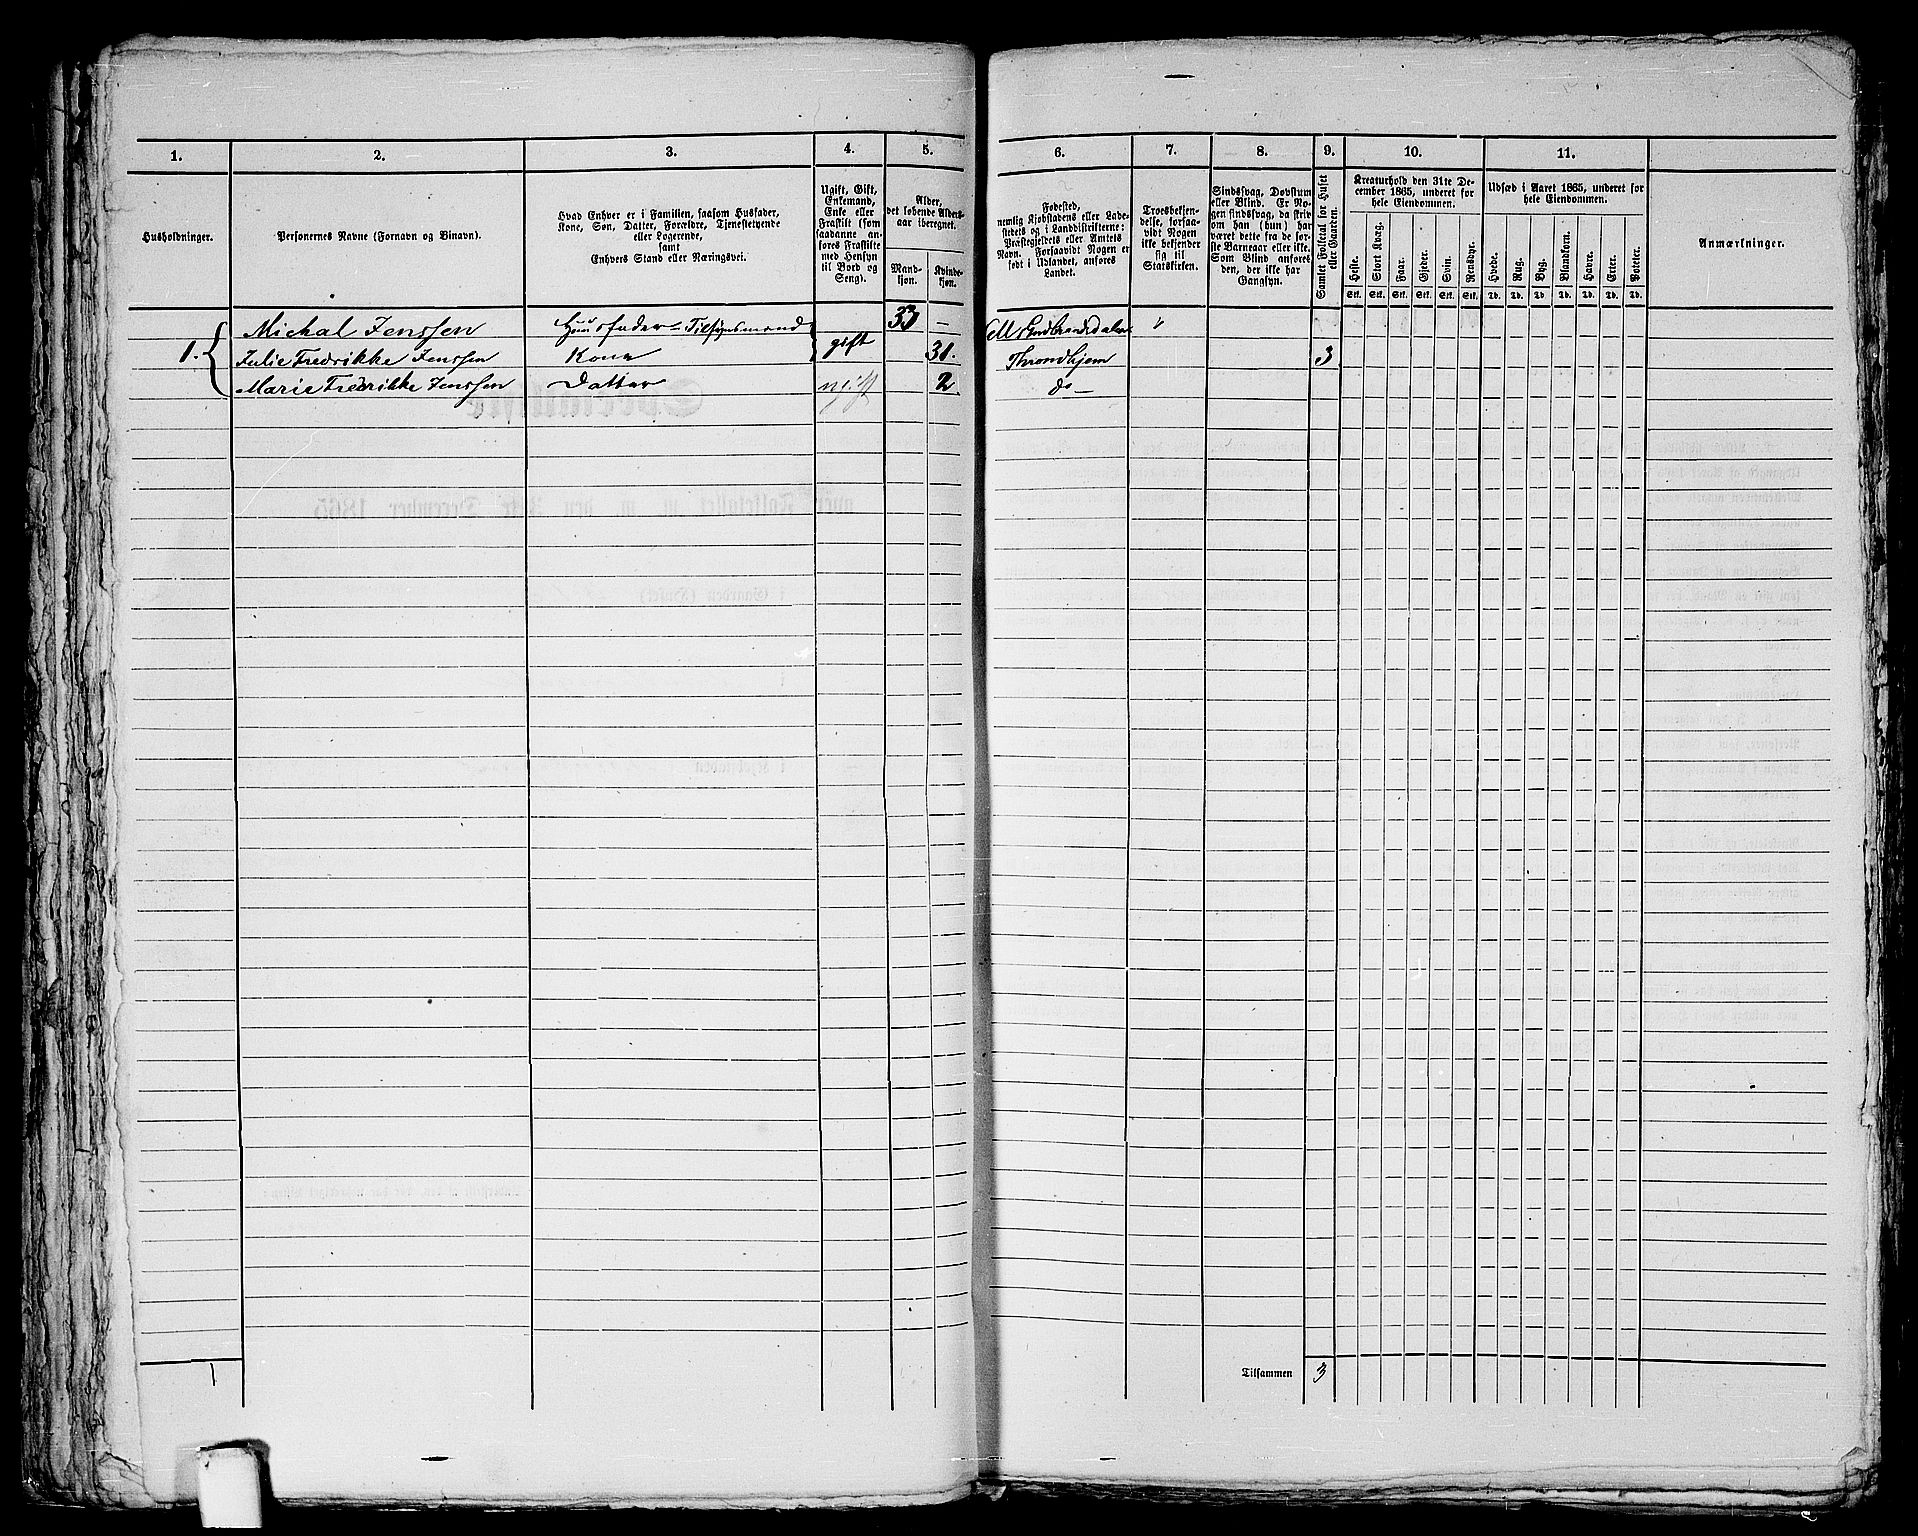 1.
2.
3.
4.
5.
6.
7.
8.
9.
10.
11.
Husholdninger.
Personernes Navne (Fornavn og Binavn).
Hvad Enhver er i Familien, saasom Husfader,
Kone, Søn, Datter, Forældre, Tjenestetyende
eller Logerende,
samt
Enhvers Stand eller Næringsvei.
Ugift, Gift,
Enkemand,
Enke eller
Fraskilt (som
saadanne an-
føres Fraskilte
med Hensyn
til Bord og
Seng).
Alder,
det løbende Alders-
aar iberegnet.
Mand-
kjøn.
Kvinde-
kjøn.
Fødested,
nemlig Kjøbstadens eller Lade-
stedets og i Landdistrikterne:
Præstegjeldets eller Amtets
Navn. Forsaavidt Nogen er
født i Udlandet, anføres
Landet.
Troesbekjen-
delse, forsaa-
vidt Nogen
ikke bekjender
sig til
Statskirken.
Sindssvag, Døvstum
eller Blind. Er No-
gen sindssvag, da skriv
om han (hun) har
været dette fra de før-
ste Barneaar eller ikke.
Som Blind anføres
den, der ikke har
Gangsyn.
Samlet Folketal for Huset
eller Gaarden.
Kreaturhold den 31te De-
cember 1865, underet for
hele Eiendommen.
Heste.
Stort Kvæg.
Faar.
Gjeder.
Svin.
Rensdyr.
Stk. Stk. Stk. Stk. Stk. Stk.
Udsæd i Aaret 1865, underet for
hele Eiendommen.
Hvede.
Rug.
Byg.
Blandkorn.
Havre.
Erter.
Poteter.
Td. Td. Td. Td. Td. Td. Td.
Anmærkninger.
Michal Jenssen Huusfader = Tilsynsmand 33 — Gudbrandsdalen "
1. Julie Fredrikke Jenssen Kone gift 31. Throndhjem 3
Marie Fredrikke Jenssen Datter ugift 2 do —
1
Tilsammen 3